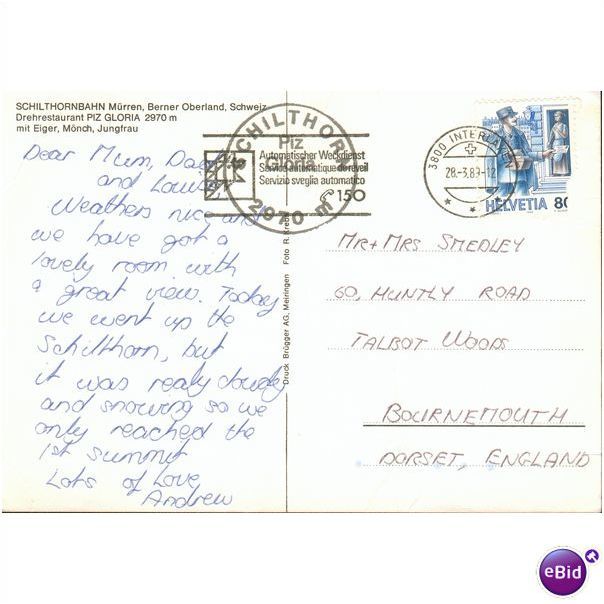 SCHILTHORNBAHN Mürren, Berner Oberland, Schweiz
Drehrestaurant PIZ GLORIA 2970 m
mit Eiger, Mönch, Jungfrau
Dear Mum, Dad
and Louise
Weathers nice and
we have got a
lovely room with
a great view. Today
we went up the
Schilthorn, but
it was realy cloudy
and snowing so we
only reached the
1st summit
Lots of Love
Andrew
Druck Brügger AG, Meiringen Foto R. Krebs
SCHILTHORN
Piz
Gloria
2970 m
Automatischer Weckdienst
Service automatique de réveil
Servizio sveglia automatico
150
3800 INTERLAKEN
28.-3.89-12
HELVETIA 80
MR + MRS SMEDLEY
60, HUNTLY ROAD
TALBOT WOODS
BOURNEMOUTH
DORSET, ENGLAND
eBid